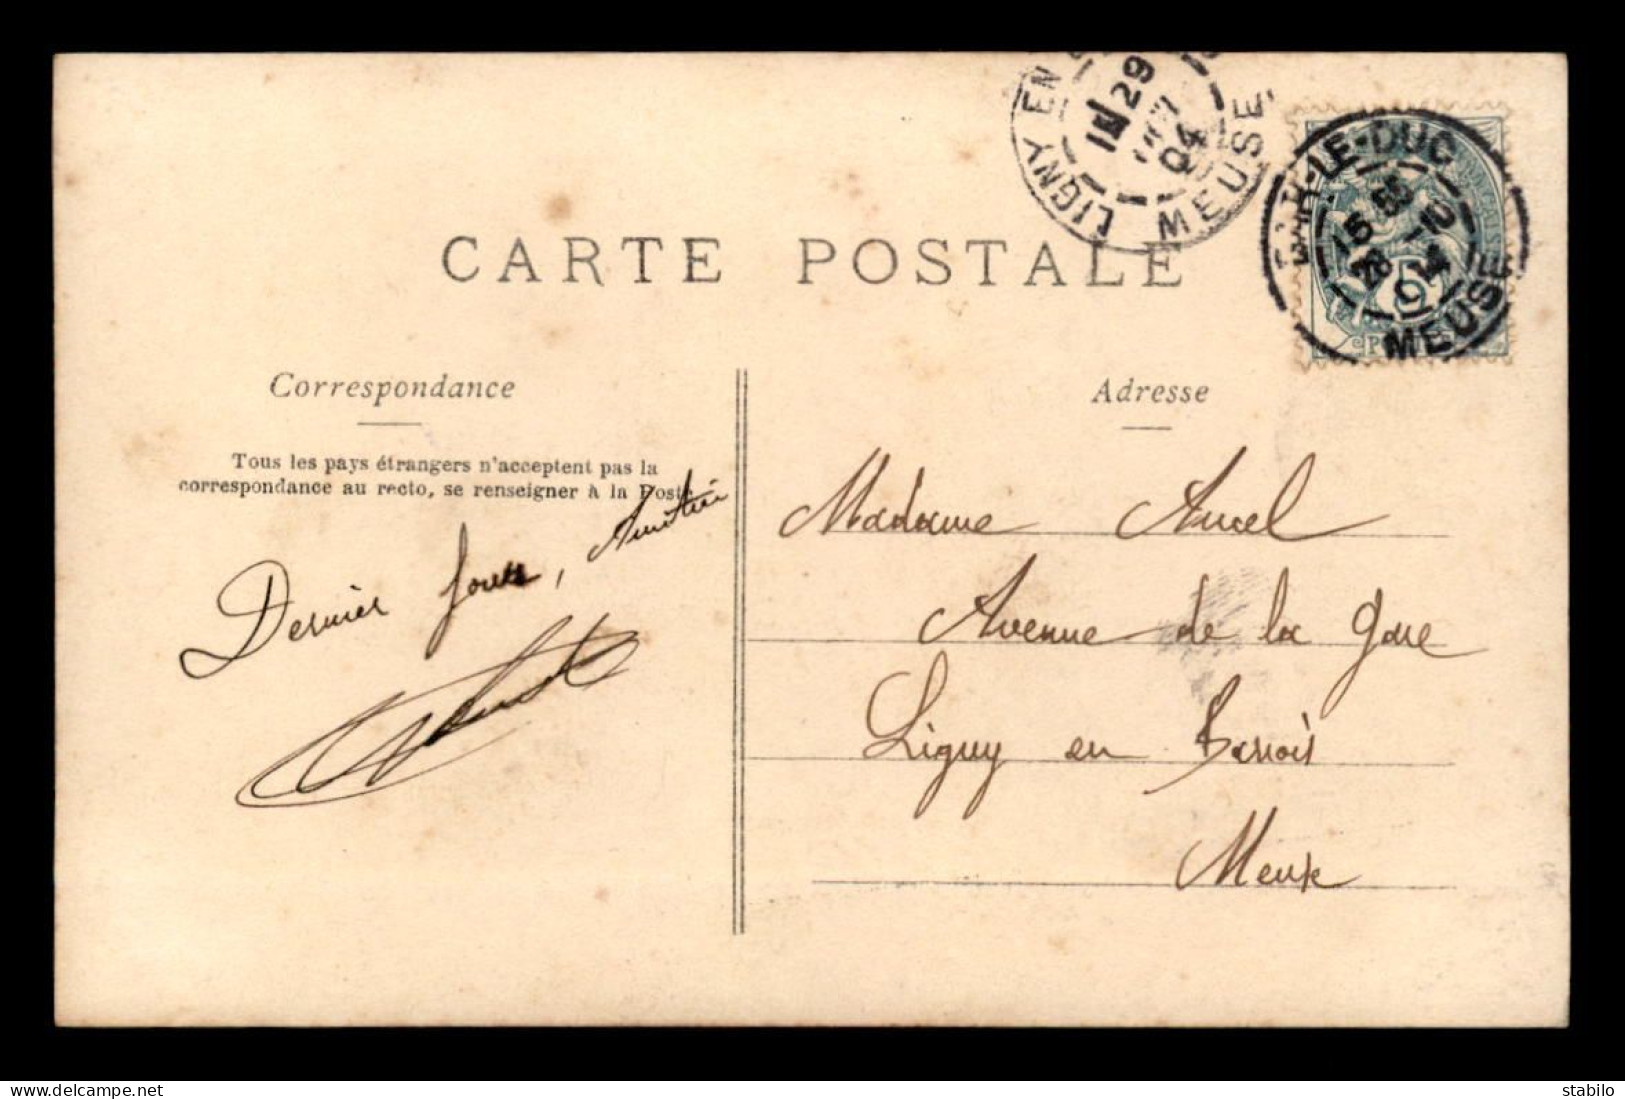 LIGNY EN
29
04
MEUSE
BAR-LE-DUC
15
28 -10
04
MEUSE
5
CARTE POSTALE
Correspondance
Adresse
Tous les pays étrangers n'acceptent pas la
correspondance au recto, se renseigner à la Poste
Dernier jour, Amitiés
Madame Ancel
Avenue de la Gare
Ligny en Barrois
Meuse
delcampe.net
stabilo